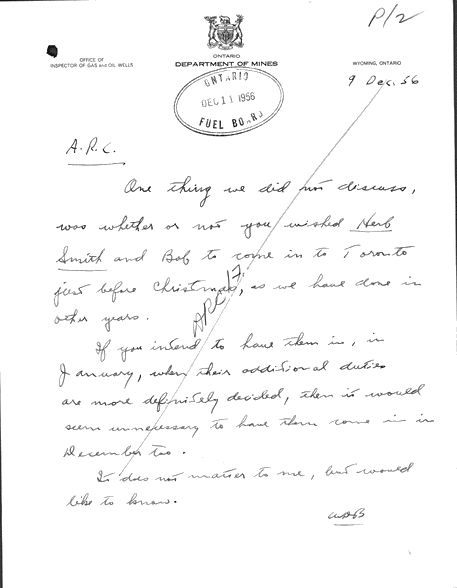 P/2
OFFICE OF
INSPECTOR OF GAS and OIL WELLS
ONTARIO
DEPARTMENT OF MINES
WYOMING, ONTARIO
9 Dec. 56
ONTARIO
DEC 11 1956
FUEL BOARD
A.R.C.
One thing we did not discuss,
was whether or not you wished Herb
Smith and Bob to come in to Toronto
just before Christmas, as we have done in
other years.
If you intend to have them in, in
January, when their additional duties
are more definitely decided, then it would
seem unnecessary to have them come in in
December too.
It does not matter to me, but would
like to know.